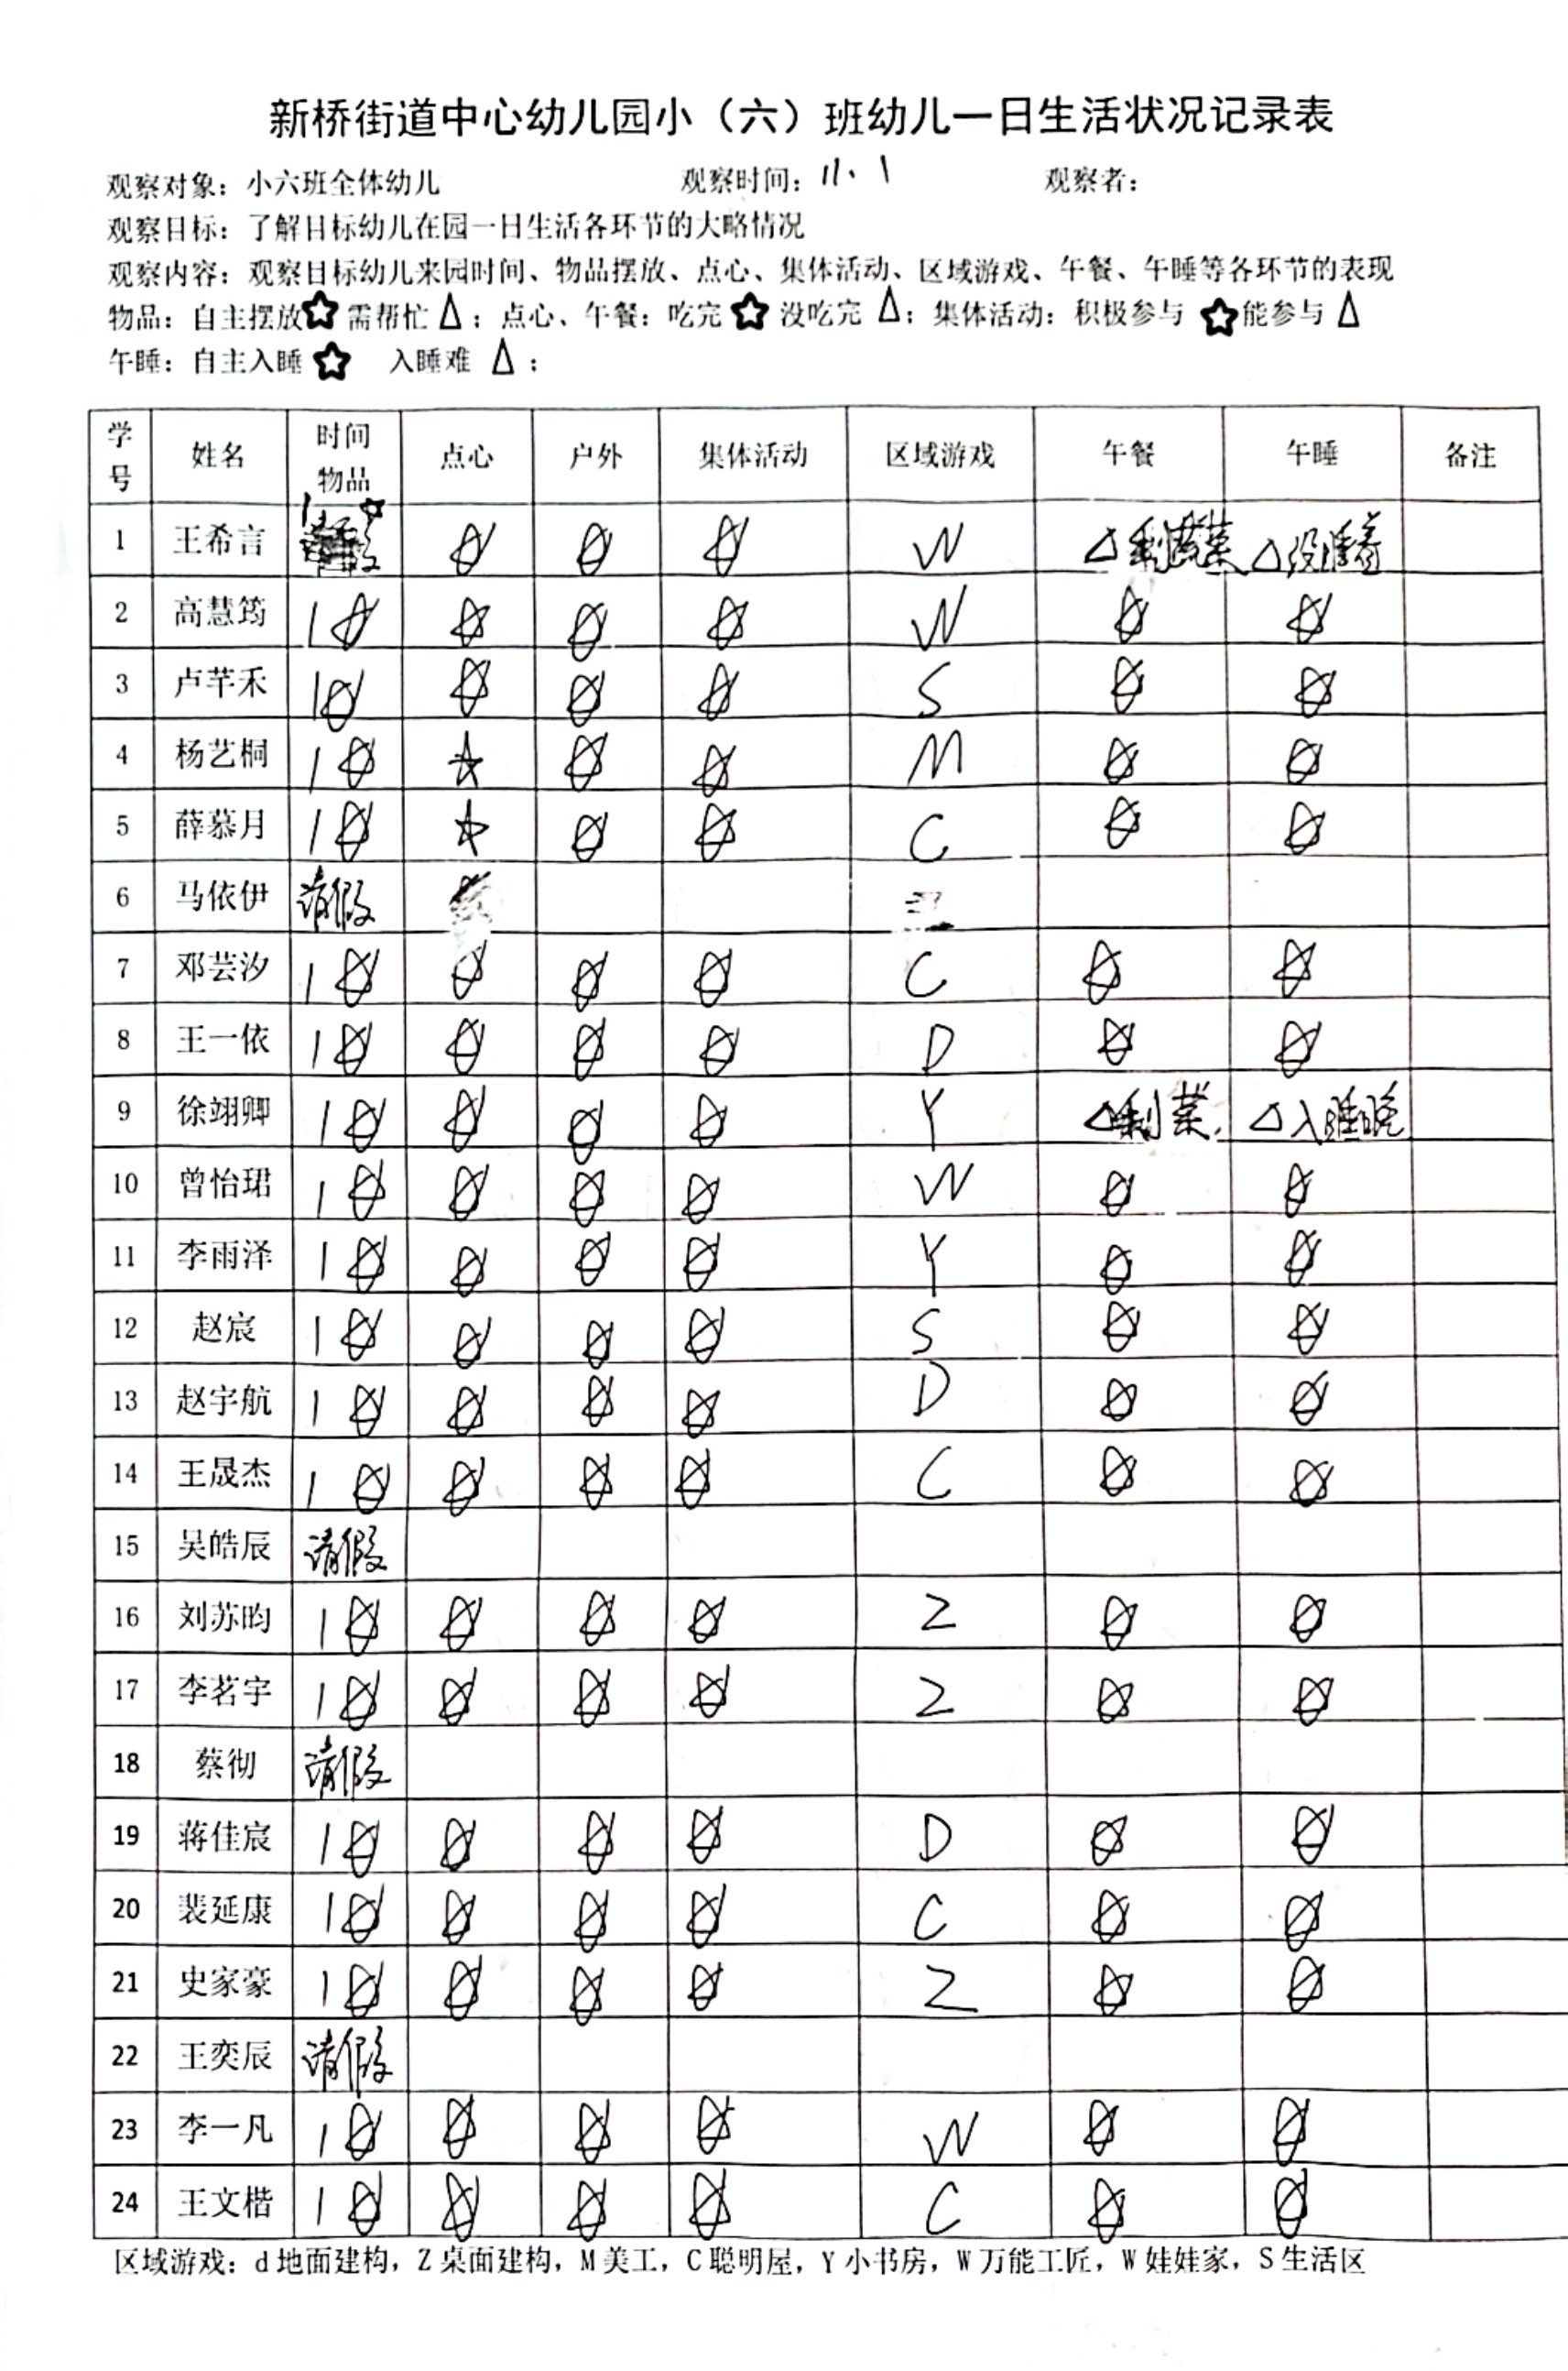 新桥街道中心幼儿园小（六）班幼儿一日生活状况记录表
观察对象：小六班全体幼儿 观察时间：11.1 观察者：
观察目标：了解目标幼儿在园一日生活各环节的大略情况
观察内容：观察目标幼儿来园时间、物品摆放、点心、集体活动、区域游戏、午餐、午睡等各环节的表现
物品：自主摆放☆需帮忙△；点心、午餐：吃完☆没吃完△；集体活动：积极参与☆能参与△
午睡：自主入睡☆ 入睡难△；
学号 姓名 时间物品 点心 户外 集体活动 区域游戏 午餐 午睡 备注
1 王希言 1☆ ☆ ☆ ☆ W △剩蔬菜 △没睡着
2 高慧筠 1☆ ☆ ☆ ☆ W ☆ ☆
3 卢芊禾 1☆ ☆ ☆ ☆ S ☆ ☆
4 杨艺桐 1☆ ☆ ☆ ☆ M ☆ ☆
5 薛慕月 1☆ ☆ ☆ ☆ C ☆ ☆
6 马依伊 请假
7 邓芸汐 1☆ ☆ ☆ ☆ C ☆ ☆
8 王一依 1☆ ☆ ☆ ☆ D ☆ ☆
9 徐翊卿 1☆ ☆ ☆ ☆ Y △剩菜. △入睡晚
10 曾怡珺 1☆ ☆ ☆ ☆ W ☆ ☆
11 李雨泽 1☆ ☆ ☆ ☆ Y ☆ ☆
12 赵宸 1☆ ☆ ☆ ☆ S ☆ ☆
13 赵宇航 1☆ ☆ ☆ ☆ D ☆ ☆
14 王晟杰 1☆ ☆ ☆ ☆ C ☆ ☆
15 吴皓辰 请假
16 刘苏昀 1☆ ☆ ☆ ☆ Z ☆ ☆
17 李茗宇 1☆ ☆ ☆ ☆ Z ☆ ☆
18 蔡彻 请假
19 蒋佳宸 1☆ ☆ ☆ ☆ D ☆ ☆
20 裴延康 1☆ ☆ ☆ ☆ C ☆ ☆
21 史家豪 1☆ ☆ ☆ ☆ Z ☆ ☆
22 王奕辰 请假
23 李一凡 1☆ ☆ ☆ ☆ W ☆ ☆
24 王文楷 1☆ ☆ ☆ ☆ C ☆ ☆
区域游戏：d地面建构，Z桌面建构，M美工，C聪明屋，Y小书房，W万能工匠，W娃娃家，S生活区